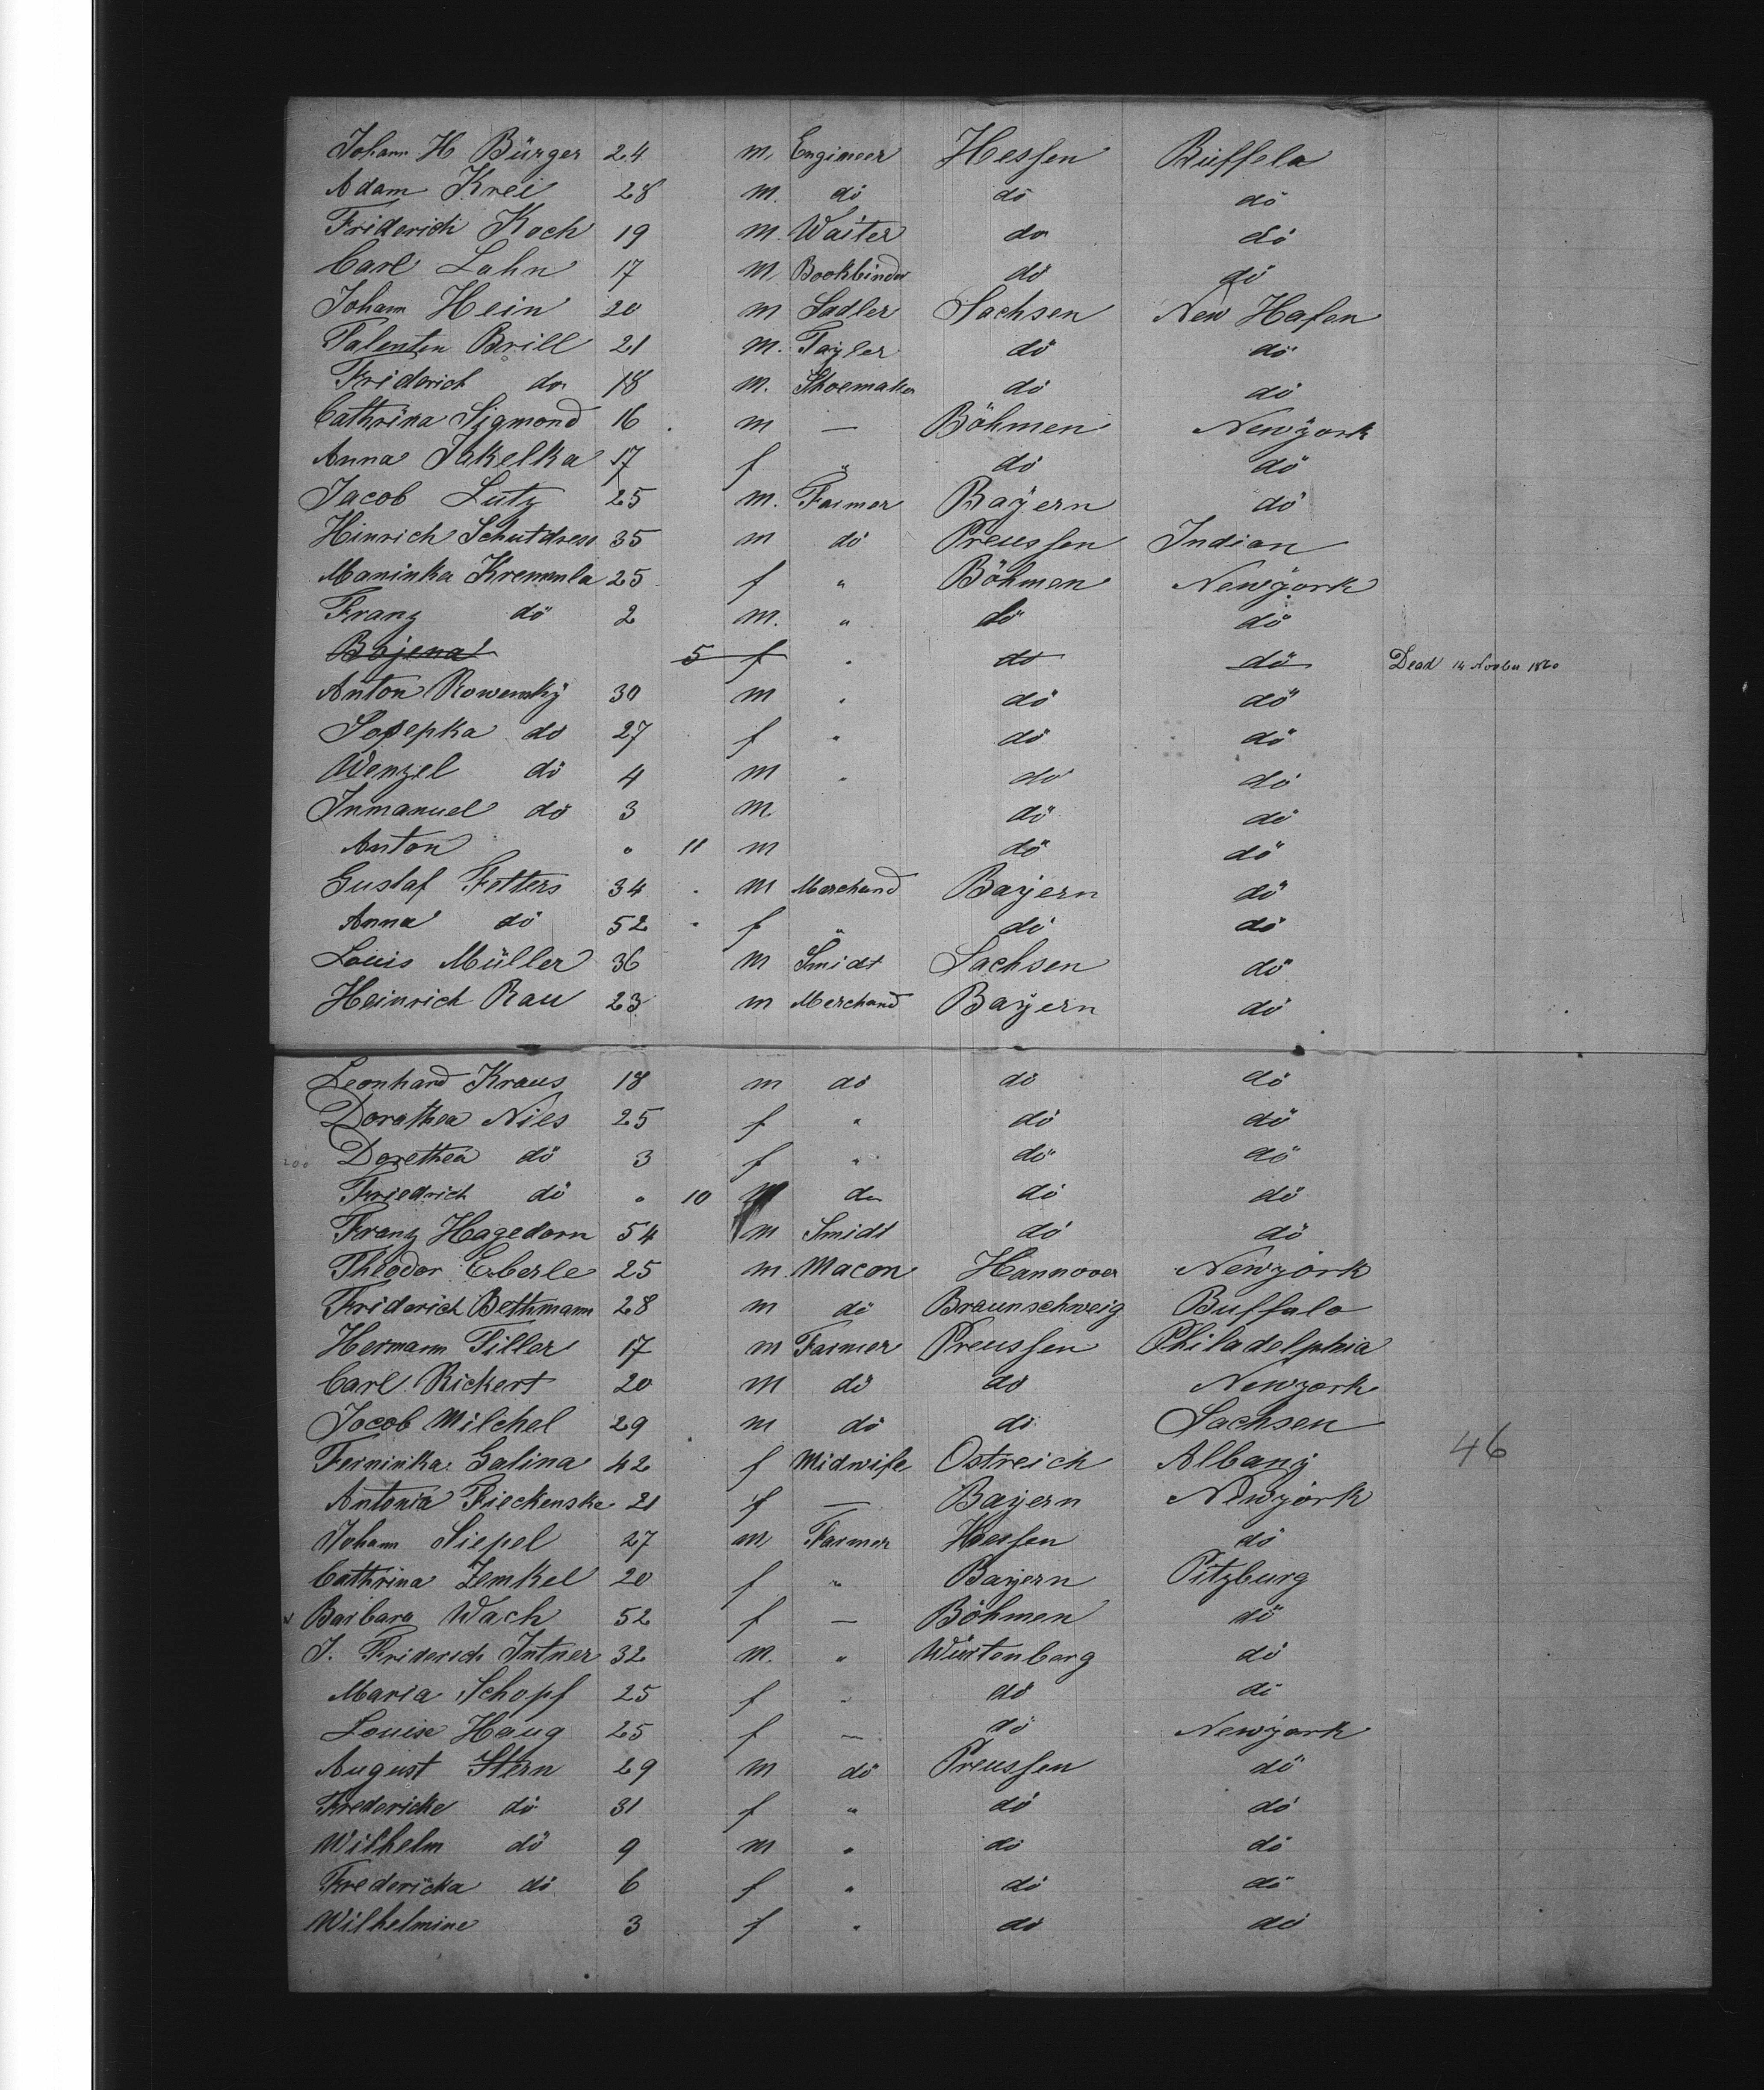 Johann H Bürger 24 m. Engineer Hessen Büffela
Adam Krei 28 m. do do do
Friderich Koch 19 m. Waiter do do
Carl Lahn 17 m. Bookbinder do do
Johann Hein 20 m Sadler Sachsen New Hafen
Falenten Brill 21 m. Tayler do do
Friderich do 18 m. Shoemaker do do
Cathrina Sigmond 16 m — Böhmen Newyork
Anna Jakelka 17 f " do do
Jacob Lutz 25 m. Farmer Bayern do
Hinrich 35 m do Preussen Indian
Maninka Kremenla 25 f " Böhmen Newyork
Franz do 2 m. " do do
Bojena 5 f " do do Dead 14 1860
Anton Rowensky 30 m " do do
Josepka do 27 f " do do
Wenzel do 4 m " do do
Inmanuel do 3 m. do do
Anton " 11 m do do
Gustaf Fetters 34 m Merchand Bayern do
Anna do 52 f " do do
Louis Müller 36 m Smidt Sachsen do
Heinrich Rau 23 m Merchand Bayern do
Leonhard Kraus 18 m do do do
Dorothea Nies 25 f " do do
200 Dorethea do 3 f " do do
Friedrich do " 10 do do do
Franz Hagedorn 54 m Smidt do do
Theodor Eberle 25 m. Macon Hannover Newyork
Friderich Bethmann 28 m do Braunschweig Buffalo
Hermann Filler 17 m Farmer Preussen Philadelphia
Carl Rickert 20 m do do Newyork
Jocob Milchel 29 m do do Sachsen
Galina 42 f Midwife Ostreich Albany 46
Antonia Fieckenske 21 f — Bayern Newyork
Johann Siepel 27 m Farmer Hessen do
Cathrina Zemkel 20 f " Bayern Pitzburg
Barbara Wach 52 f — Böhmen do
J. Friderich Intner 32 m. " Würtenberg do
Maria Schopf 25 f " do do
Louise Haug 25 f — do Newyork
August Stern 29 m do Preussen do
Fredericke do 31 f " do do
Wilhelm do 9 m " do do
Fredericka do 6 f " do do
Wilhelmine 3 f " do do